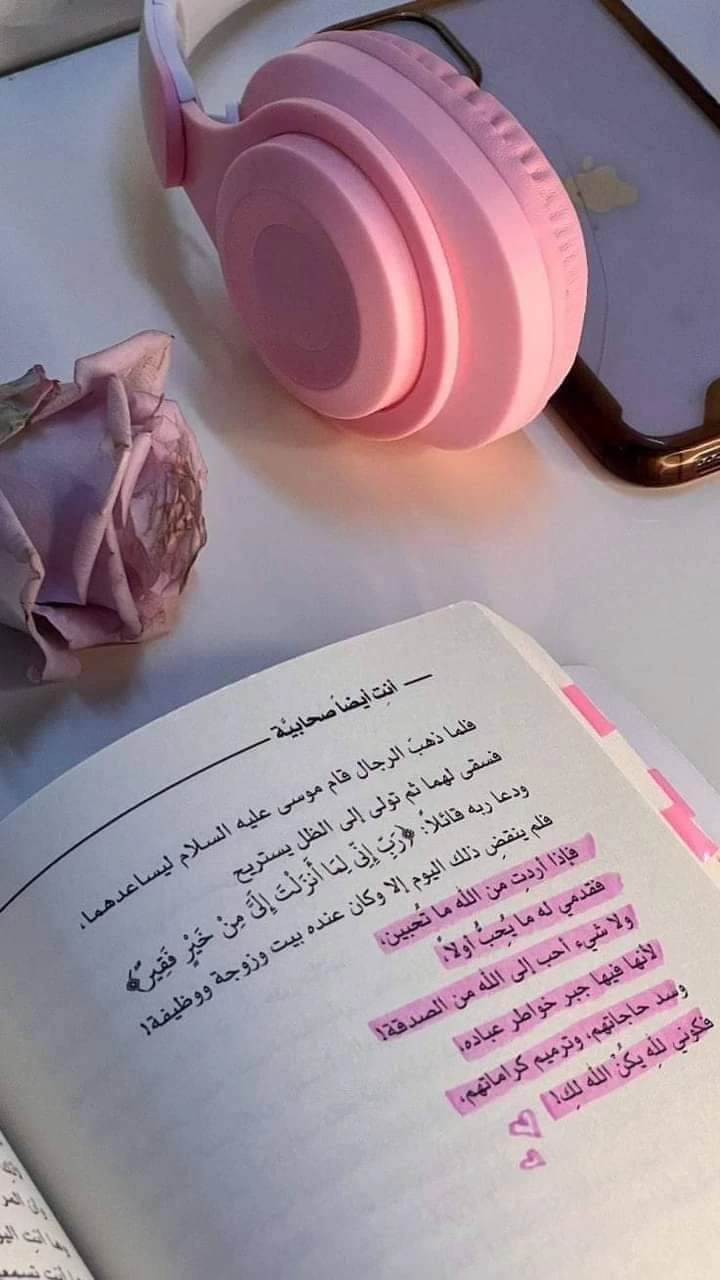 أنتِ أيضاً صحابيَّة
فلما ذهبَ الرجال قام موسى عليه السلام ليساعدهما،
فسقى لهما ثم تولى إلى الظل يستريح
ودعا ربه قائلاً: ﴿رَبِّ إِنِّي لِمَا أَنزَلْتَ إِلَيَّ مِنْ خَيْرٍ فَقِيرٌ﴾
فلم ينقضِ ذلك اليوم إلا وكان عنده بيت وزوجة ووظيفة!
فإذا أردتِ من الله ما تُحبين،
فقدمي له ما يُحِبُّ أولاً،
ولا شيء أحب إلى الله من الصدقة!
لأنها فيها جبر خواطر عباده،
وسد حاجاتهم، وترميم كراماتهم،
فكوني للهِ يكُنْ الله لكِ!